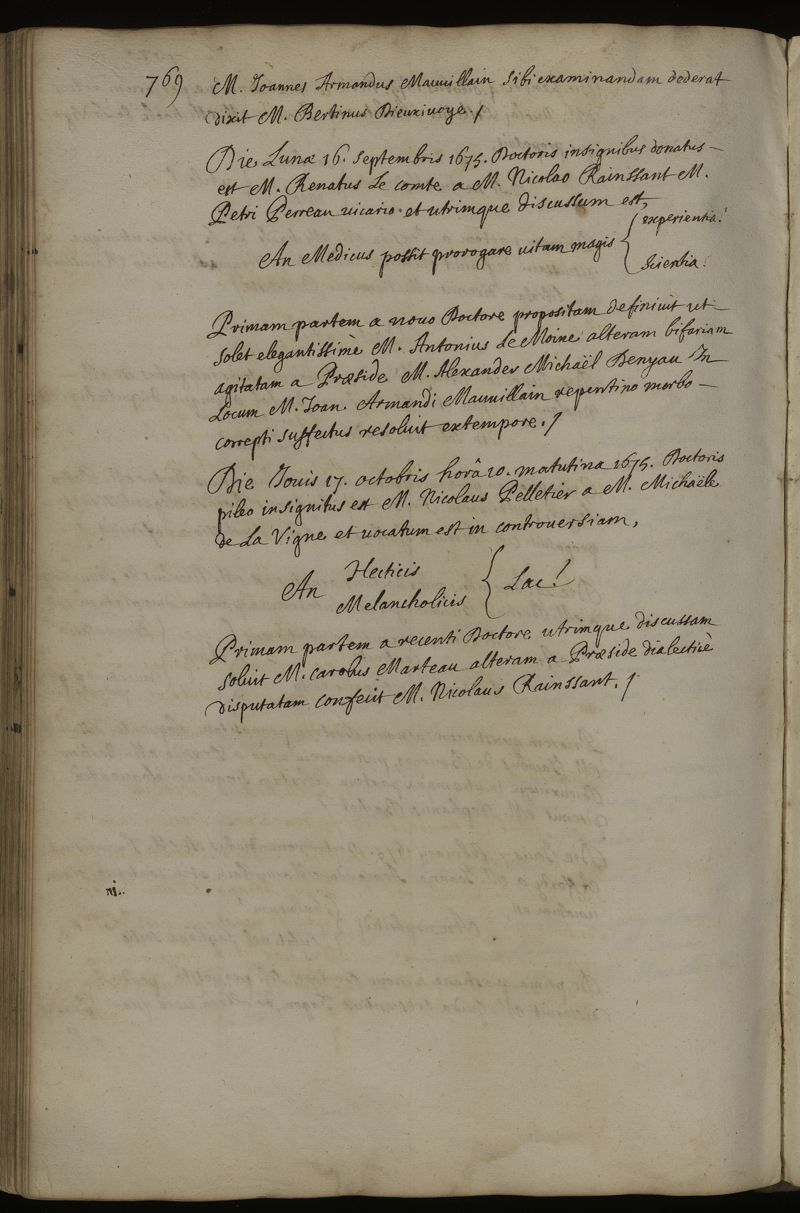 769
M. Joannes Armandus Mauvillain sibi examinandam dederat
dixit M. Bertinus Dieuxivoye. /
Die Lunæ 16. septembris 1675. Doctoris insignibus donatus
est M. Renatus Le comte a M. Nicolao Rainssant M.
Petri Perreau vicario. et utrimque discussum est,
An Medicus possit prorogare vitam magis { experientia?
scientia?
Primam partem a novo Doctore propositam definivit ut
solet elegantissimè M. Antonius Le Moine alteram bifariam
agitatam a Præside M. Alexander Michaël Denyau In
Locum M. Joan. Armandi Mauvillain repentino morbo
correpti suffectus resolvit extempore. /
Die Jovis 17. octobris horâ 10. matutina 1675. Doctoris
pileo insignitus est M. Nicolaus Pelletier a M. Michaële
de La Vigne et vocatum est in controversiam,
An Hecticis
Melancholicis { Lac?
Primam partem a recenti Doctore utrimque discussam
solvit M. Carolus Marteau alteram a Præside dialecticè
disputatam M. Nicolaus Rainssant. /